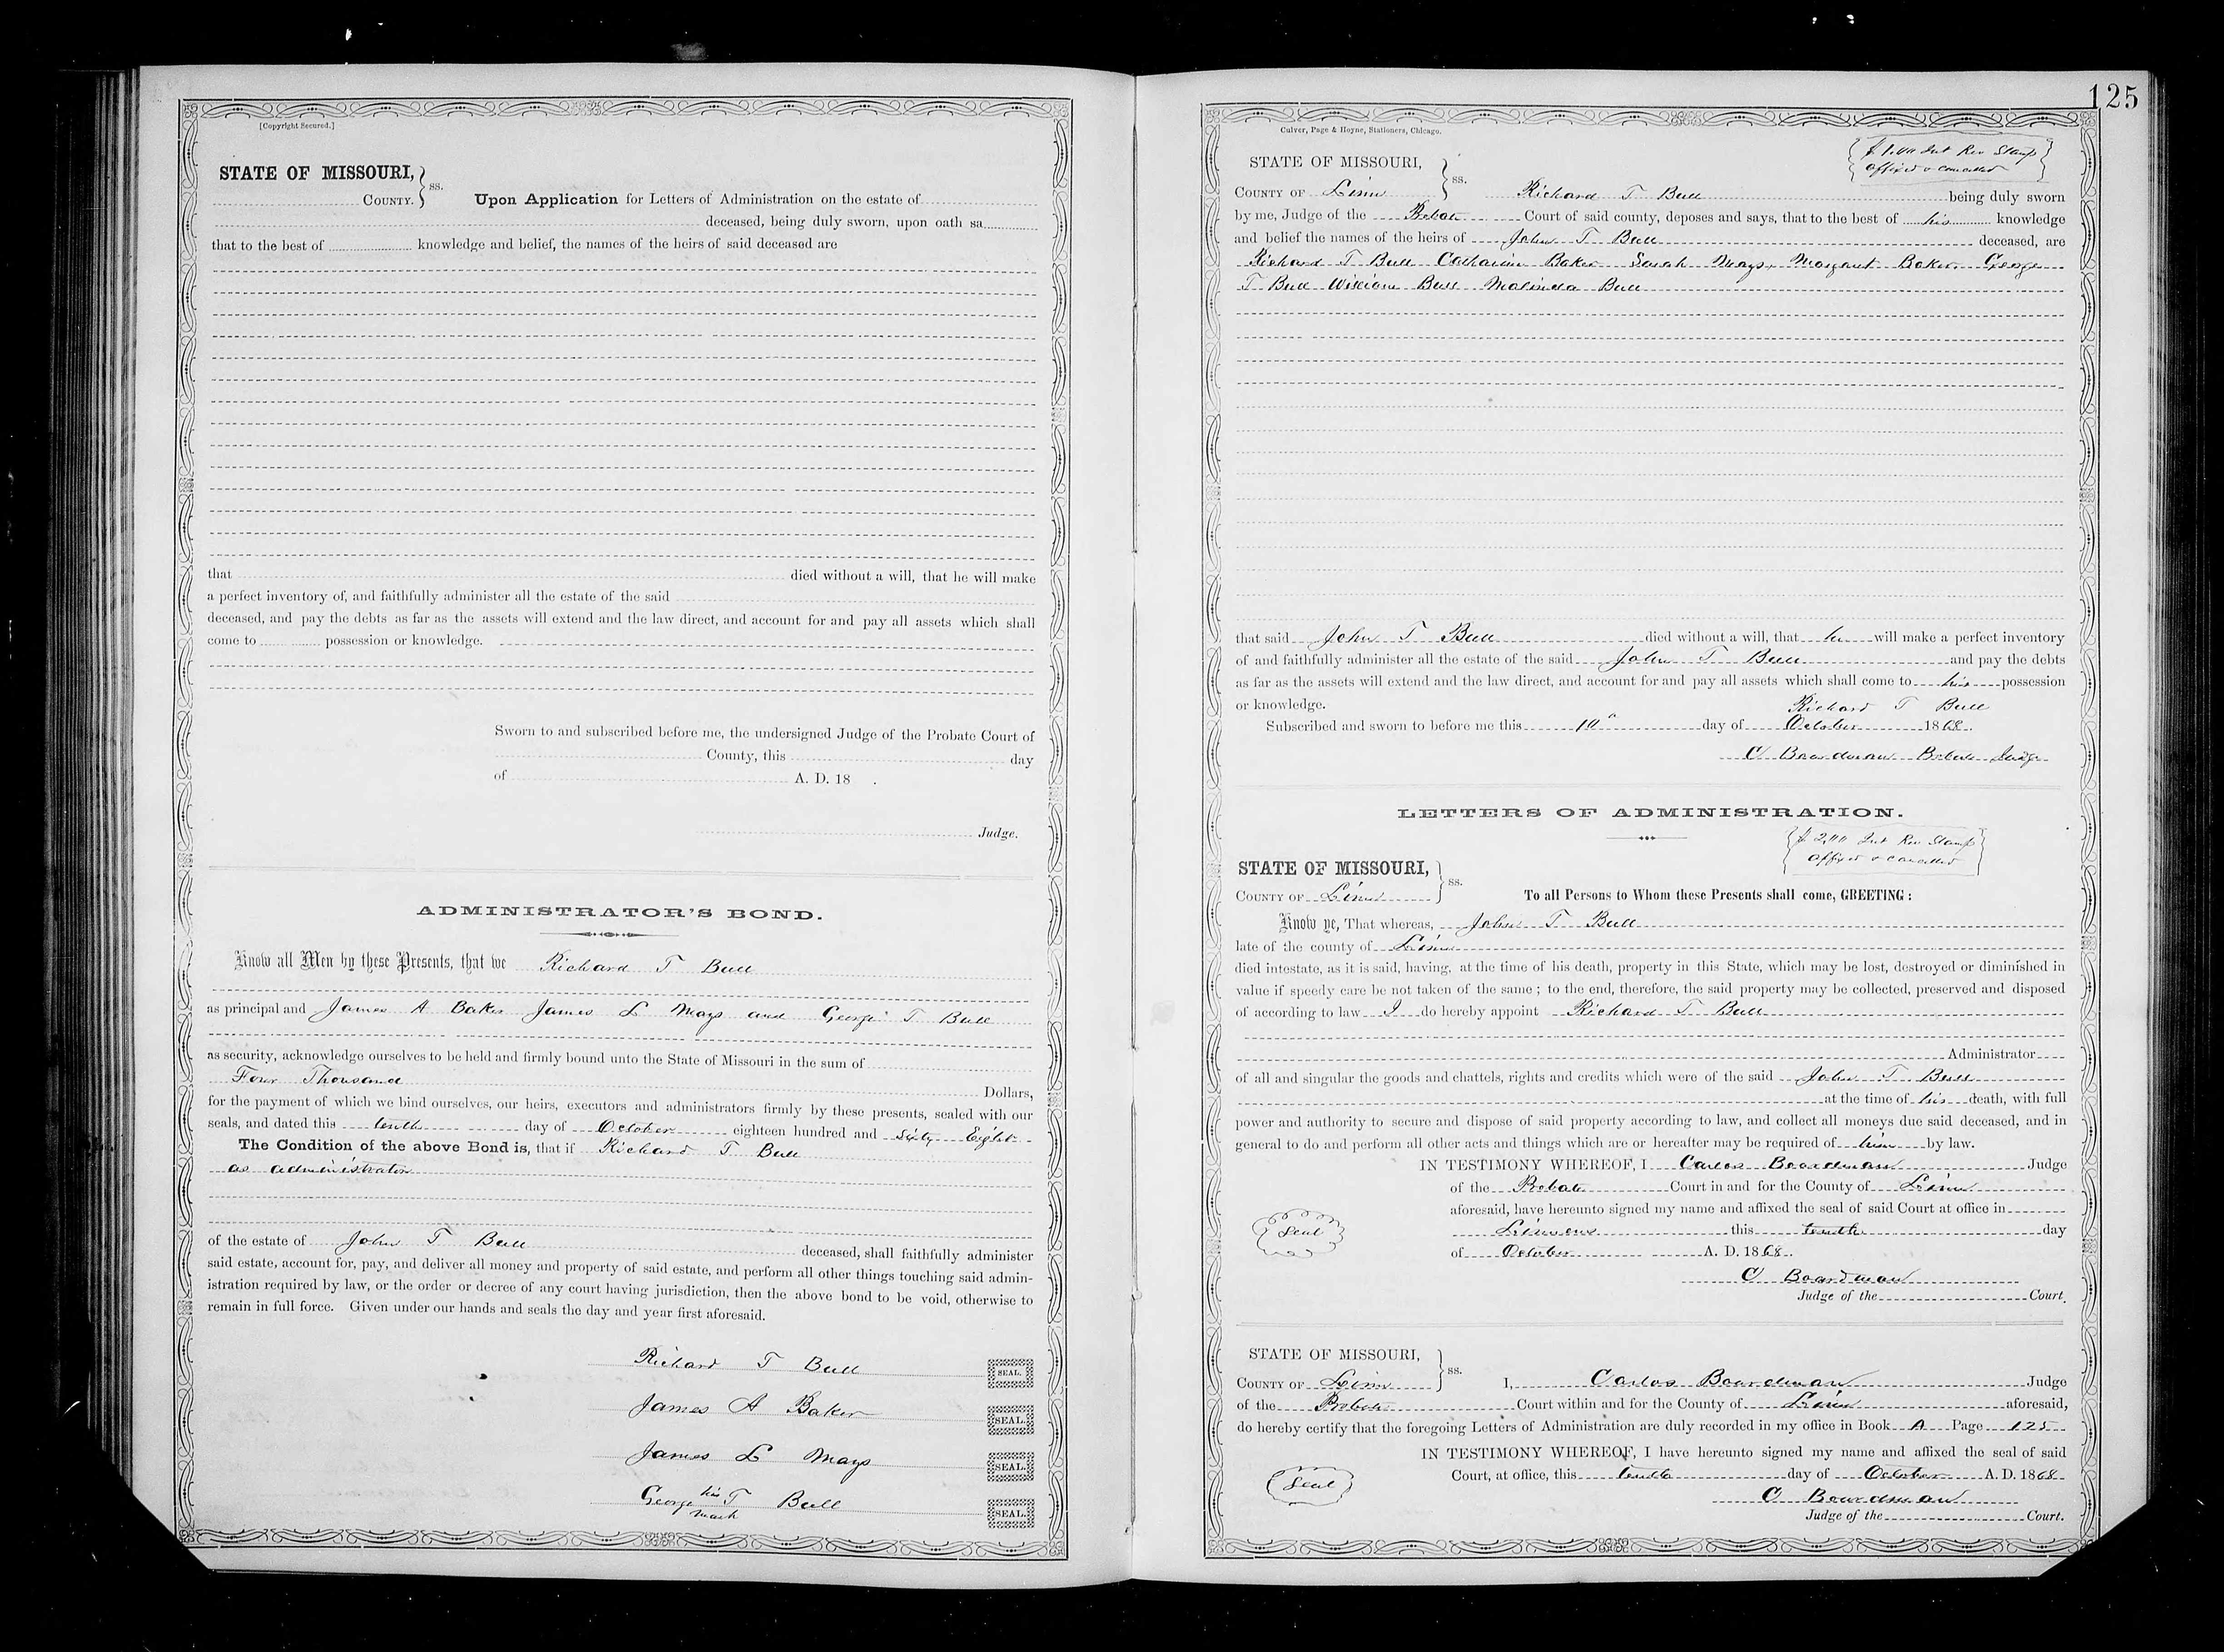 [Copyright Secured.]
STATE OF MISSOURI, } ss.
COUNTY. Upon Application for Letters of Administration on the estate of
deceased, being duly sworn, upon oath sa
that to the best of knowledge and belief, the names of the heirs of said deceased are
that died without a will, that he will make
a perfect inventory of, and faithfully administer all the estate of the said
deceased, and pay the debts as far as the assets will extend and the law direct, and account for and pay all assets which shall
come to possession or knowledge.
Sworn to and subscribed before me, the undersigned Judge of the Probate Court of
County, this day
of A. D. 18 .
Judge.
ADMINISTRATOR'S BOND.
Know all Men by these Presents, that we Richard T Bull
as principal and James A Baker James L Mays and George T Bull
as security, acknowledge ourselves to be held and firmly bound unto the State of Missouri in the sum of
Four Thousand Dollars,
for the payment of which we bind ourselves, our heirs, executors and administrators firmly by these presents, sealed with our
seals, and dated this tenth day of October eighteen hundred and Sixty Eight
The Condition of the above Bond is, that if Richard T Bull
as administrator
of the estate of John T Bull deceased, shall faithfully administer
said estate, account for, pay, and deliver all money and property of said estate, and perform all other things touching said admin-
istration required by law, or the order or decree of any court having jurisdiction, then the above bond to be void, otherwise to
remain in full force. Given under our hands and seals the day and year first aforesaid.
Richard T Bull SEAL.
James A Baker SEAL.
James L Mays SEAL.
George his T Bull SEAL.
mark
125
Culver, Page & Hoyne, Stationers, Chicago.
$1.00 Int Rev Stamp
affixed & cancelled
STATE OF MISSOURI, } ss.
COUNTY OF Linn Richard T Bull being duly sworn
by me, Judge of the Probate Court of said county, deposes and says, that to the best of his knowledge
and belief the names of the heirs of John T Bull deceased, are
Richard T Bull Catharine Baker Sarah Mays, Margaret Baker George
T Bull William Bull Malinda Bull
that said John T Bull died without a will, that he will make a perfect inventory
of and faithfully administer all the estate of the said John T Bull and pay the debts
as far as the assets will extend and the law direct, and account for and pay all assets which shall come to his possession
or knowledge. Richard T Bull
Subscribed and sworn to before me this 10" day of October 1868.
C Boardman Probate Judge
LETTERS OF ADMINISTRATION.
$2,00 Int Rev Stamp
affixed & cancelled
STATE OF MISSOURI, } ss.
COUNTY OF Linn To all Persons to Whom these Presents shall come, GREETING:
Know ye, That whereas, John T Bull
late of the county of Linn
died intestate, as it is said, having, at the time of his death, property in this State, which may be lost, destroyed or diminished in
value if speedy care be not taken of the same; to the end, therefore, the said property may be collected, preserved and disposed
of according to law I do hereby appoint Richard T Bull
Administrator
of all and singular the goods and chattels, rights and credits which were of the said John T Bull
at the time of his death, with full
power and authority to secure and dispose of said property according to law, and collect all moneys due said deceased, and in
general to do and perform all other acts and things which are or hereafter may be required of him by law.
IN TESTIMONY WHEREOF, I Carlos Boardman Judge
of the Probate Court in and for the County of Linn
aforesaid, have hereunto signed my name and affixed the seal of said Court at office in
Seal Linneus this tenth day
of October A. D. 1868.
C Boardman
Judge of the Court.
STATE OF MISSOURI, } ss.
COUNTY OF Linn I, Carlos Boardman Judge
of the Probate Court within and for the County of Linn aforesaid,
do hereby certify that the foregoing Letters of Administration are duly recorded in my office in Book A Page 125
IN TESTIMONY WHEREOF, I have hereunto signed my name and affixed the seal of said
Seal Court, at office, this tenth day of October A. D. 1868
C Boardman
Judge of the Court.